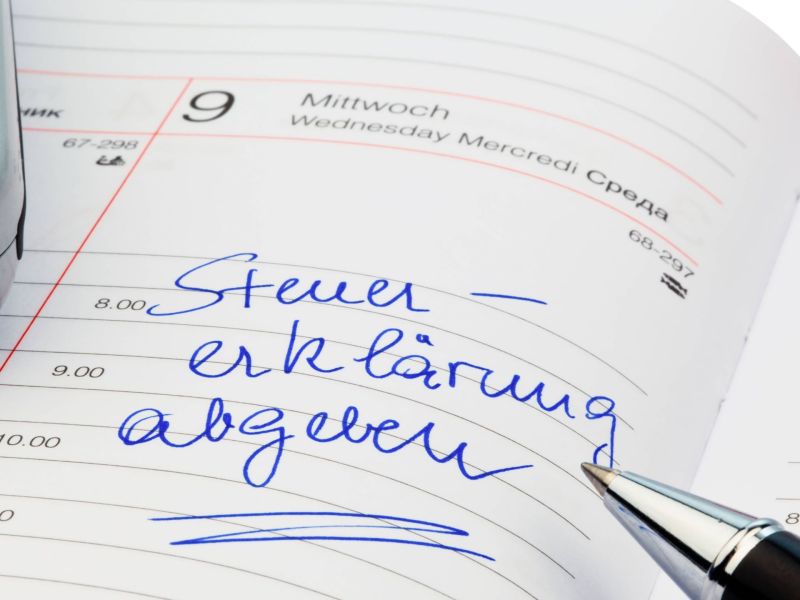 9 Mittwoch
Wednesday Mercredi Среда
ник
67-298
68-297
Steuer –
8.00
erklärung
9.00
abgeben
10.00
0
8